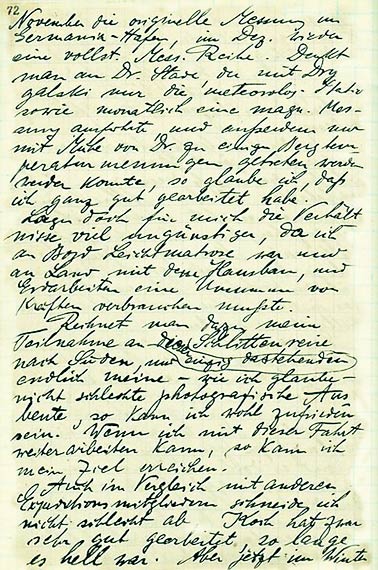 72
November die originelle Messung im
Germania-Hafen, im Dez. wieder
eine vollst. Mess. Reihe. Denkt
man an Dr. Stade, der mit Dry
galski nur die meteorolog. Station
sowie monatlich eine magn. Mes-
sung ausführte und ausserdem nur
mit Mühe von Dr. zu einigen Bergtem
peraturmessungen getrieben werden
konnte, so glaube ich, daß
ich ganz gut gearbeitet habe.
Lagen doch für mich die Verhält
nisse viel ungünstiger, da ich
an Bord Leichtmatrose war und
an Land mit dem Hausbau, und
Erdarbeiten eine Unsumme von
Kräften verbrauchen mußte.
Rechnet man dazu meine
Teilnahme an der Schlittenreise
nach Süden, und einzig dastehenden
endlich meine – wie ich glaube –
nicht schlechte photografische Aus
beute, so kann ich wohl zufrieden
sein. Wenn ich mit dieser Fahrt
weiterarbeiten kann, so kann ich
mein Ziel erreichen.
Auch im Vergleich mit anderen
Expeditionsmitgliedern schneide ich
nicht schlecht ab. Koch hat zwar
sehr gut gearbeitet, so lange
es hell war. Aber jetzt im Winter